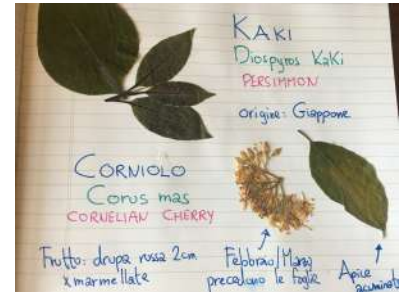 KAKI
Diospyros Kaki
PERSIMMON
origine: Giappone
CORNIOLO
Corus mas
CORNELIAN CHERRY
Frutto: drupa rossa 2cm
x marmellate
Febbraio/Marzo
precedono le foglie
Apice
acuminato